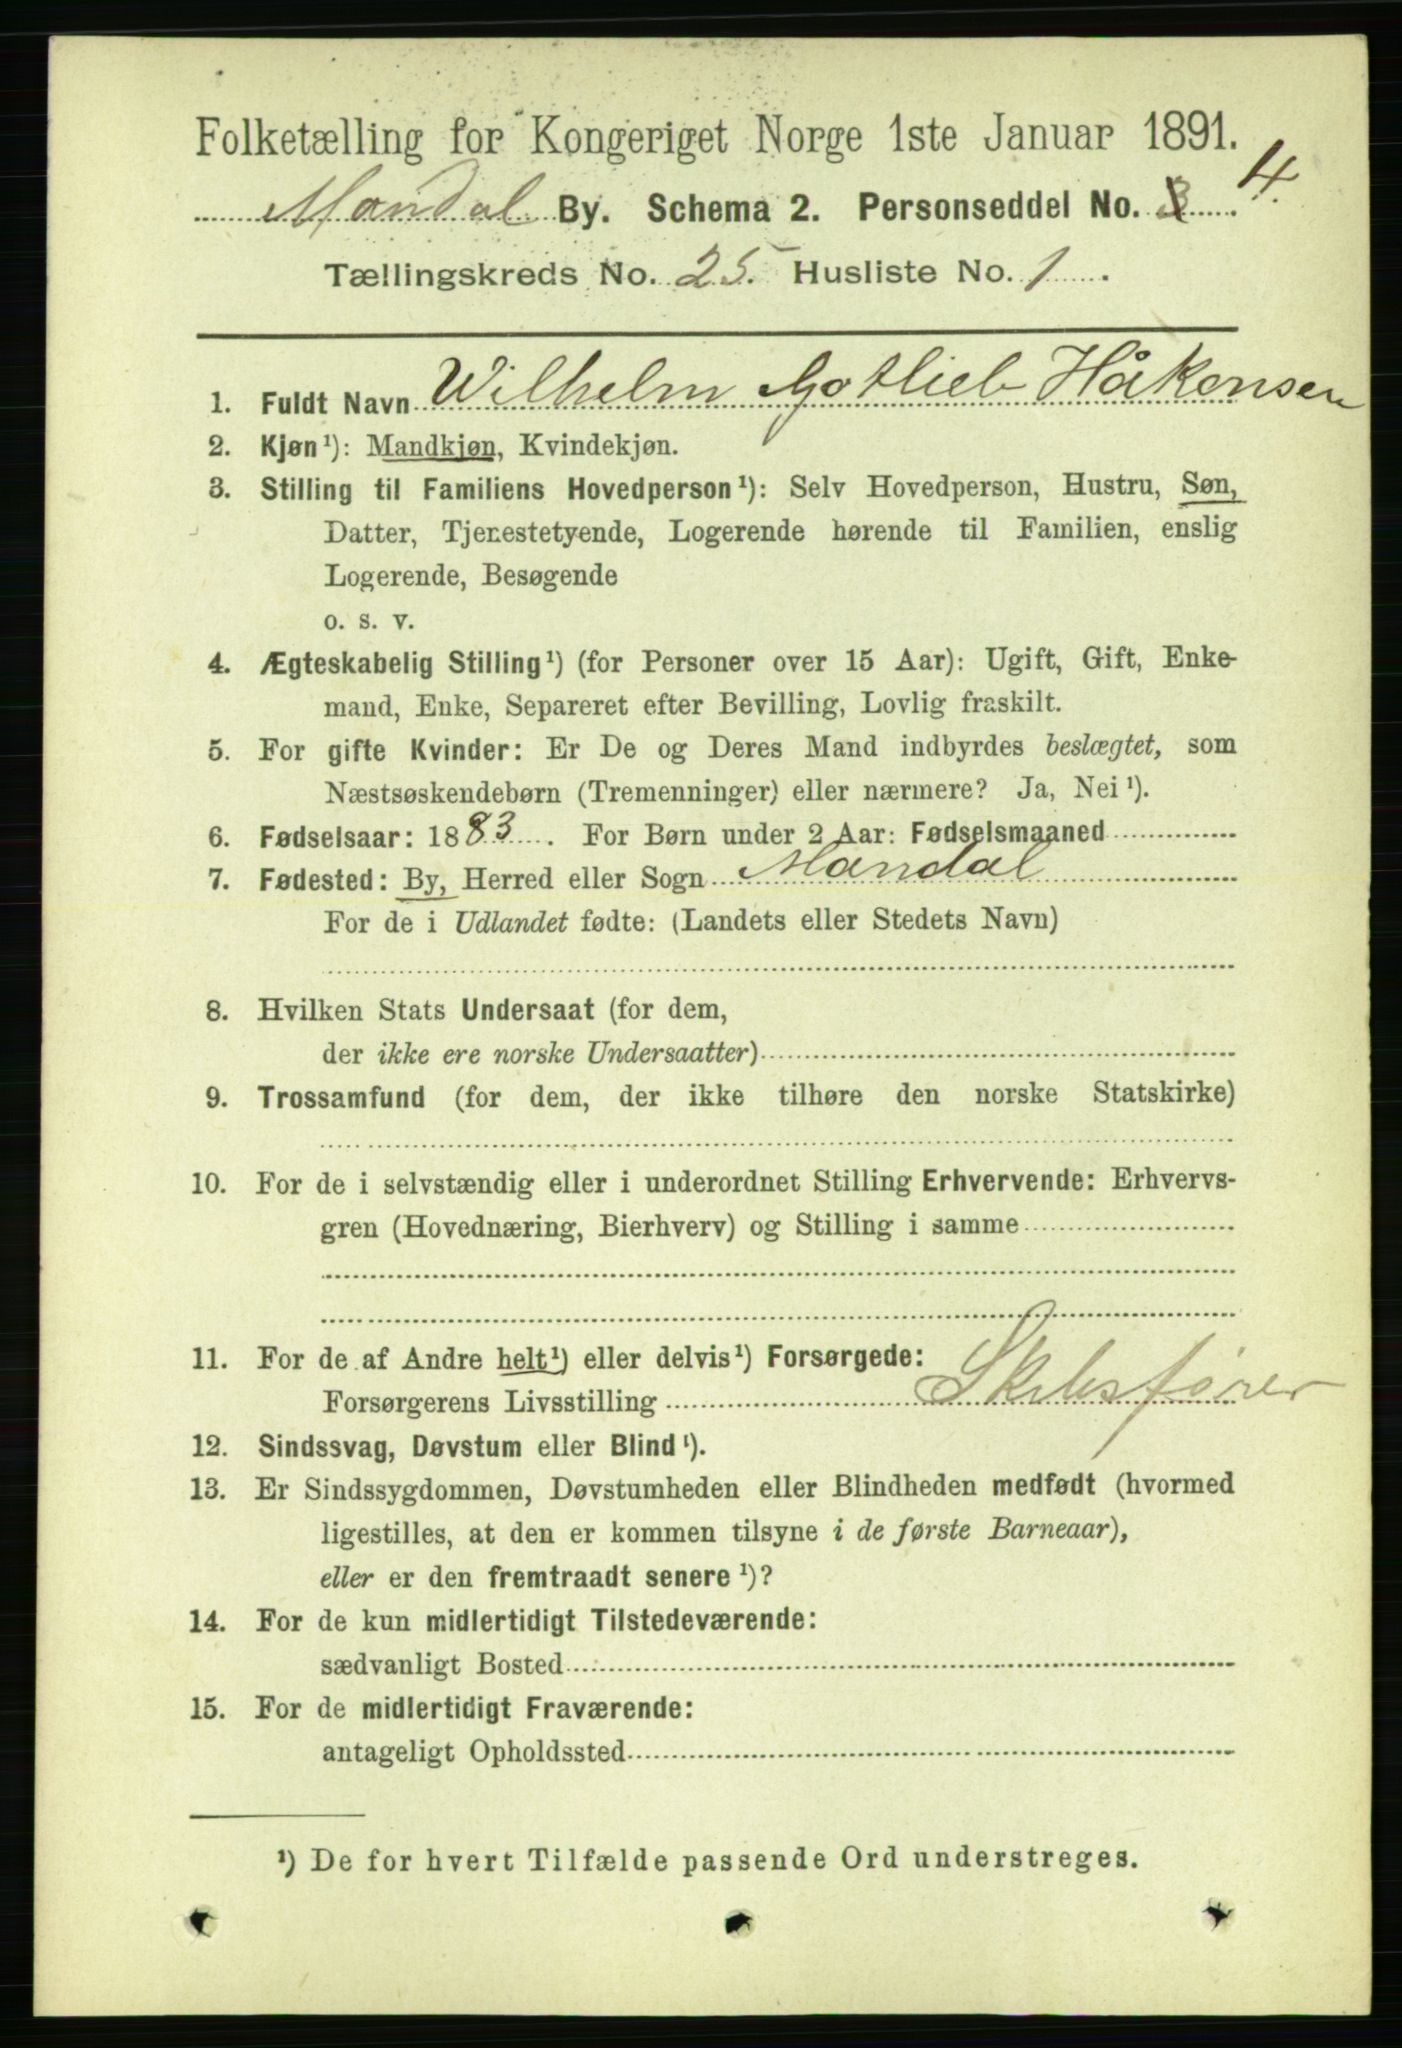 Folketælling for Kongeriget Norge 1ste Januar 1891.
Mandal By. Schema 2. Personseddel No. 3 4.
Tællingskreds No. 25. Husliste No. 1.
1. Fuldt Navn Wilhelm Gotlieb Håkonsen
2. Kjøn¹): Mandkjøn, Kvindekjøn.
3. Stilling til Familiens Hovedperson¹): Selv Hovedperson, Hustru, Søn,
Datter, Tjenestetyende, Logerende hørende til Familien, enslig
Logerende, Besøgende
o. s. v.
4. Ægteskabelig Stilling¹) (for Personer over 15 Aar): Ugift, Gift, Enke-
mand, Enke, Separeret efter Bevilling, Lovlig fraskilt.
5. For gifte Kvinder: Er De og Deres Mand indbyrdes beslægtet, som
Næstsøskendebørn (Tremenninger) eller nærmere? Ja, Nei¹).
6. Fødselsaar: 1883. For Børn under 2 Aar: Fødselsmaaned
7. Fødested: By, Herred eller Sogn Mandal
For de i Udlandet fødte: (Landets eller Stedets Navn)
8. Hvilken Stats Undersaat (for dem,
der ikke ere norske Undersaatter)
9. Trossamfund (for dem, der ikke tilhøre den norske Statskirke)
10. For de i selvstændig eller i underordnet Stilling Erhvervende: Erhvervs-
gren (Hovednæring, Bierhverv) og Stilling i samme
11. For de af Andre helt¹) eller delvis¹) Forsørgede:
Forsørgerens Livsstilling Skibsfører
12. Sindssvag, Døvstum eller Blind¹).
13. Er Sindssygdommen, Døvstumheden eller Blindheden medfødt (hvormed
ligestilles, at den er kommen tilsyne i de første Barneaar),
eller er den fremtraadt senere¹)?
14. For de kun midlertidigt Tilstedeværende:
sædvanligt Bosted
15. For de midlertidigt Fraværende:
antageligt Opholdssted
¹) De for hvert Tilfælde passende Ord understreges.